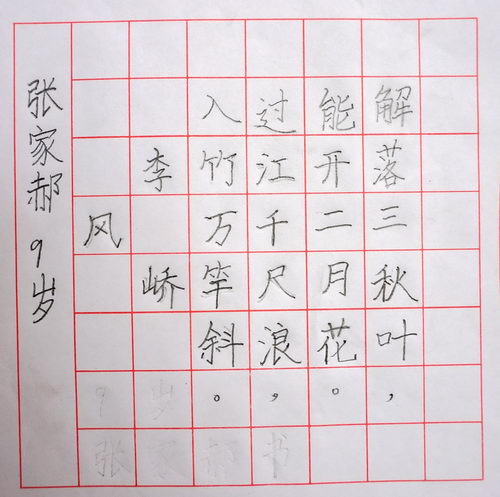 解落三秋叶，
能开二月花。
过江千尺浪，
入竹万竿斜。
李峤
风
张家郝 9岁
9岁
张家郝书